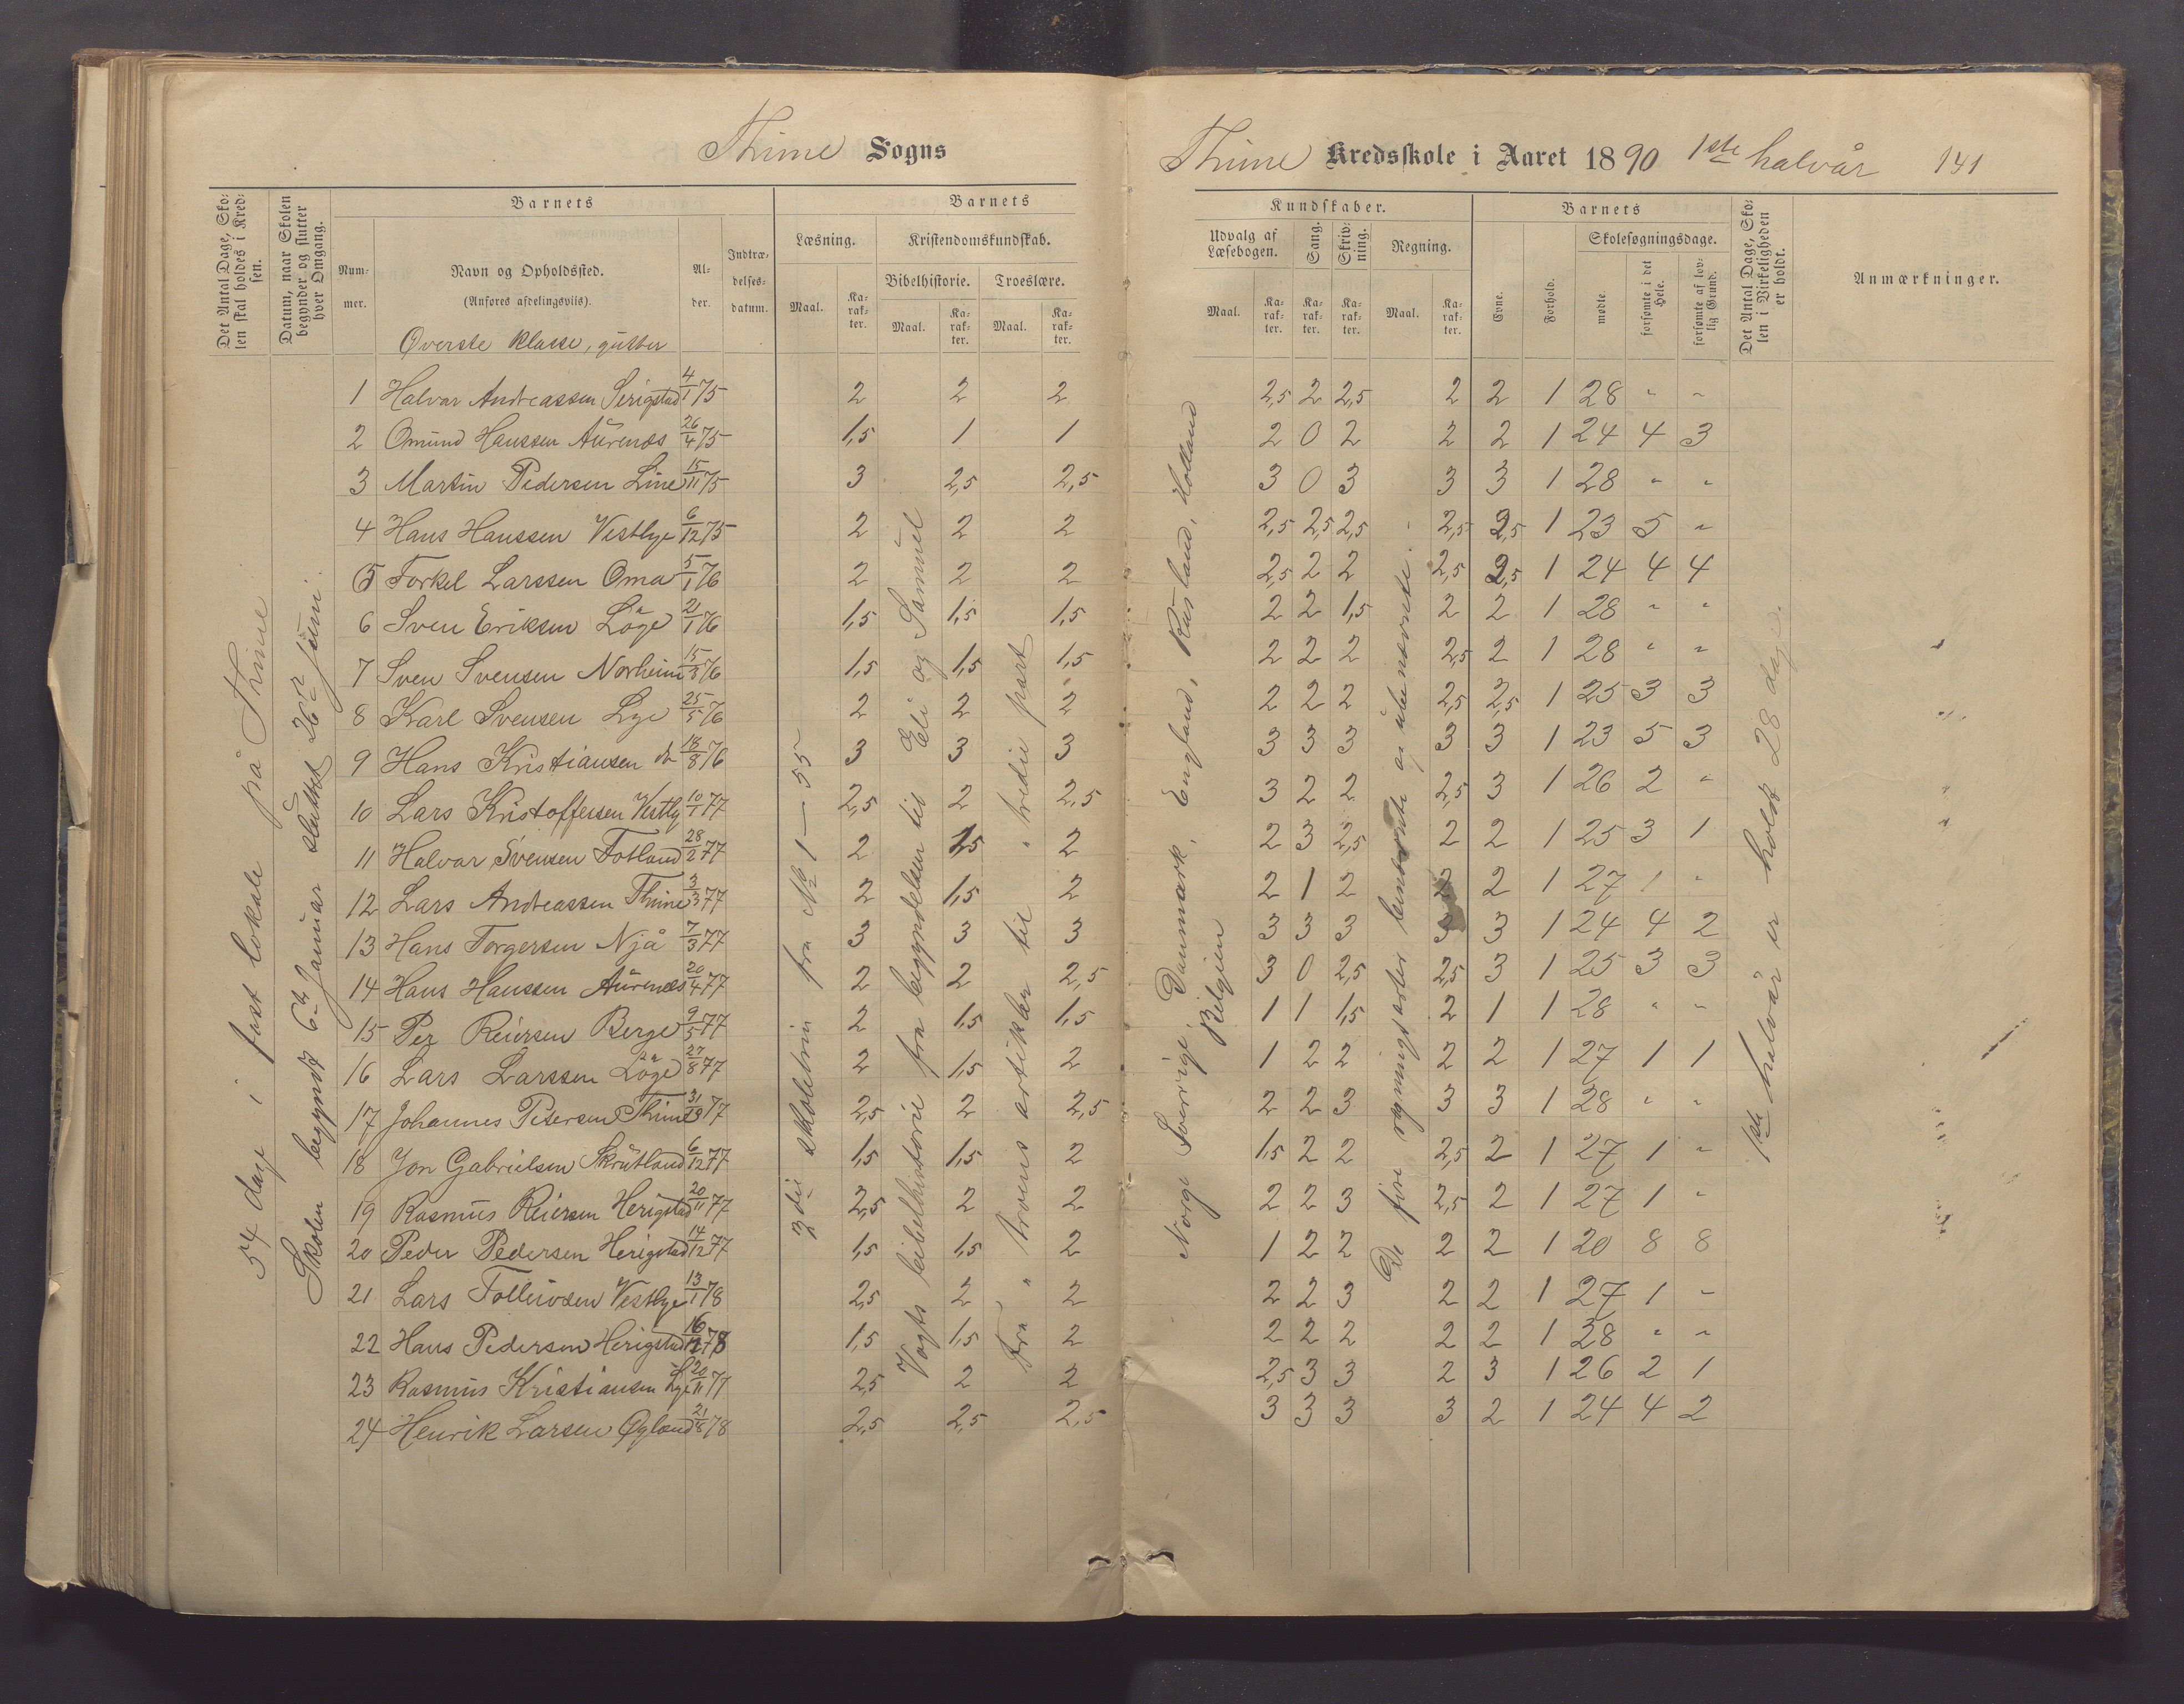 Thime Sogns
Thime Kredsskole i Aaret 1890 1ste halvår 141
Det Antal Dage, Skolen skal holdes i Kredsen.
Datum, naar Skolen begynder og slutter hver Omgang.
Barnets
Nummer.
Navn og Opholdssted.
(Anføres afdelingsviis).
Alder.
Indtrædelsesdatum.
Barnets
Læsning.
Kristendomskundskab.
Bibelhistorie.
Troeslære.
Maal.
Karakter.
Maal.
Karakter.
Maal.
Karakter.
Kundskaber.
Udvalg af Læsebogen.
Sang.
Skrivning.
Regning.
Maal.
Karakter.
Karakter.
Karakter.
Maal.
Karakter.
Barnets
Evne.
Forhold.
Skolesøgningsdage.
mødte.
forsømte i det Hele.
forsømte af lovlig Grund.
Det Antal Dage, Skolen i Virkeligheden er holdt.
Anmærkninger.
Øverste klasse, gutter
54 dage i fast lokale på Thime.
Skolen begyndt 6te Januar sluttet 26de Juni.
3die skoletrin fra No 1 — 55
Vogts bibelhistorie fra begyndelsen til Eli og Samuel
Fra " troens artikler til " tredie part
Norge Sverrige, Danmark, England, Rusland, Holland
Belgien
De fire regningsarter benævnte og ubenævnte.
1ste halvår er holdt 28 dage.
1 Halvar Andreassen Serigstad 4/1 75 2 2 2 2,5 2 2,5 2 2 1 28 " "
2 Omund Hanssen Aurenes 26/4 75 1,5 1 1 2 0 2 2 2 1 24 4 3
3 Martin Pedersen Line 15/11 75 3 2,5 2,5 3 0 3 3 3 1 28 " "
4 Hans Hanssen Vestlye 6/12 75 2 2 2 2,5 2,5 2,5 2,5 2,5 1 23 5 "
5 Torkel Larssen Oma 5/1 76 2 2 2 2,5 2 2 2,5 2,5 1 24 4 4
6 Sven Eriksen Løge 21/1 76 1,5 1,5 1,5 2 2 1,5 2 2 1 28 " "
7 Sven Svensen Norheim 15/3 76 1,5 1,5 1,5 2 2 2 2,5 2 1 28 " "
8 Karl Svensen Lye 25/5 76 2 2 2 2 2 2 2,5 2,5 1 25 3 3
9 Hans Kristiansen do 18/8 76 3 3 3 3 3 3 3 3 1 23 5 3
10 Lars Kristoffersen Vestly 10/1 77 2,5 2 2,5 3 2 2 2,5 3 1 26 2 "
11 Halvar Svensen Fotland 28/2 77 2 1,5 2 2 3 2,5 2 2 1 25 3 1
12 Lars Andreassen Thime 3/3 77 2 1,5 2 2 1 2 2 2 1 27 1 "
13 Hans Torgersen Njå 7/3 77 3 3 3 3 3 3 3 3 1 24 4 2
14 Hans Hanssen Aurenes 20/4 77 2 2 2,5 3 0 2,5 2,5 3 1 25 3 3
15 Per Reiersen Berge 9/5 77 2 1,5 1,5 1 1 1,5 2 1 1 28 " "
16 Lars Larssen Løge 27/8 77 2 1,5 2 1 2 2 2 2 1 27 1 1
17 Johannes Petersen Thime 77 2,5 2 2,5 2 2 3 3 3 1 28 " "
18 Jon Gabrielsen Skrutland 6/12 77 1,5 1,5 2 1,5 2 2 2,5 2 1 27 1 "
19 Rasmus Reiersen Herigstad 20/11 77 2,5 2 2 2 2 3 2,5 2 1 27 1 "
20 Peder Pedersen Herigstad 14/12 77 1,5 1,5 2 1 2 2 2 2 1 20 8 8
21 Lars Tolleivsen Vestlye 13/1 78 2,5 2 2 2 2 3 2 2 1 27 1 "
22 Hans Pedersen Herigstad 78 1,5 1,5 2 2 2 2 2 2 1 28 " "
23 Rasmus Kristiansen Lye 20/11 77 2,5 2 2 2,5 3 3 2 3 1 26 2 1
24 Henrik Larsen Øgland 21/8 78 2,5 2,5 2,5 3 3 3 3 2 1 24 4 2